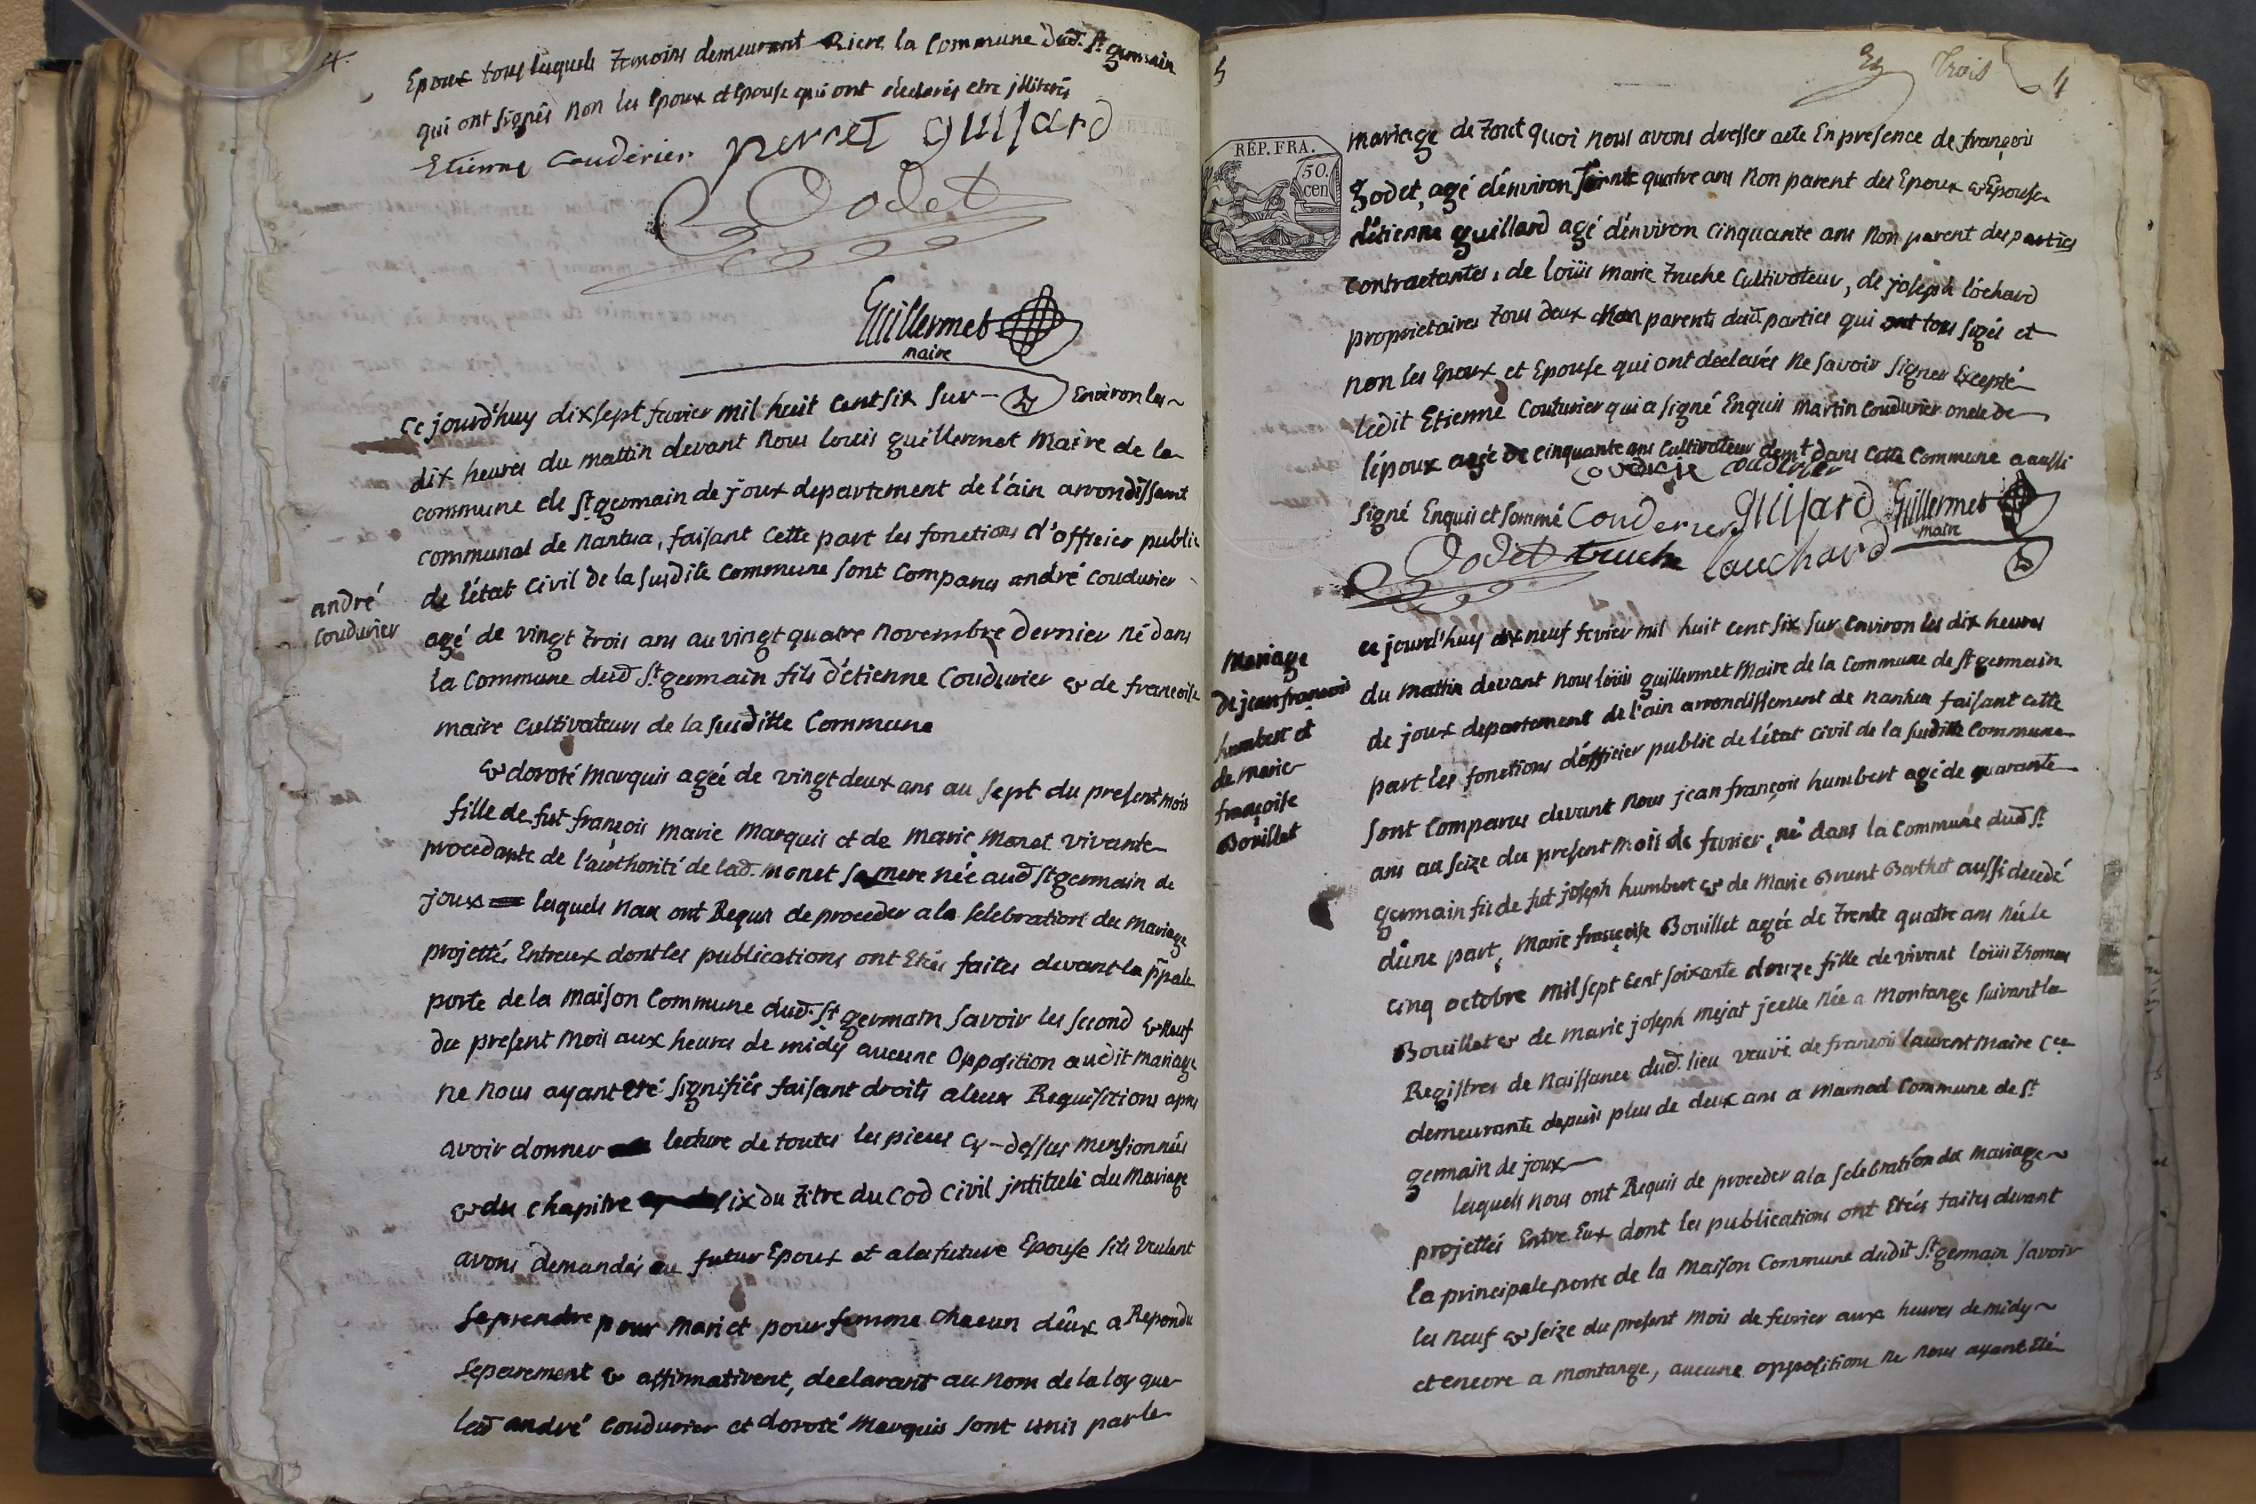 4.
Epoux tous lesquels temoins demeurant Riere la Commune dud. St. germain
qui ont signés non les Epoux et Epouse qui ont déclarés etre illiterés
Etienne Couderier perret guilard
Dodet
Guillermet
maire
ce jourd'huy dix sept fevrier mil huit cent six sur Environ les
dix heures du mattin devant nous louis guillermet Maire de la
commune de St. germain de joux departement de l'ain arrondissemt
communal de nantua, faisant cette part les fonctions d'officier public
de l'état Civil de la susdite Commune sont Comparus andré coudurier
andré
coudurier
agé de vingt trois ans au vingt quatre novembre dernier né dans
la Commune dud St. germain fils d'étienne Coudurier & de francoise
maire Cultivateurs de la susditte Commune
& doroté Marquis agée de vingt deux ans au sept du present mois
fille de fut françois marie Marquis et de Marie Monet vivante
procedante de l'authorité de lad. Monet sa mere née aud St germain de
joux lesquels nous ont Requis de proceder a la selebration du Mariage
projetté Entreux dont les publications ont Etés faites devant la ppale
porte de la Maison Commune dud. St. germain Savoir les second & neuf
du present Mois aux heures de midy aucune Opposition audit Mariage
ne nous ayant eté signifiés faisant droits a leur Requisitions apres
avoir donner lecture de toutes les pieces cy-dessus mensionnées
& du chapitre six du titre du Cod Civil jntitulé du Mariage
avons demandés au futur Epoux et a la future Epouse sils veulent
se prendre pour Mari et pour femme chacun d'eux a Repondu
separement & affirmativent, declarant au nom de la loy que
led andré Coudurier et doroté Marquis sont unis par le
5
Trois
4
RÉP. FRA.
50.
cen
mariage de tout quoi nous avons dresser acte En presence de françois
godet, agé d'environ quatre ans non parent des Epoux & Epouse
d'étienne guillard agé d'environ cinquante ans non parent des parties
Contractantes, de loüis marie truche Cultivateur, de joseph lochard
proprietaires tous deux non parents dud. parties qui ont tous sigés et
non les Epoux et Epouse qui ont declarés ne savoir signer Excepté
ledit Etienne Couturier qui a signé Enquis Martin Coudurier oncle de
l'époux agé de cinquante ans Cultivateur demt. dans cette Commune a aussi
couderier
signé Enquis et sommé Couderier guilard Guillermet
maire
Dodet truche lauchard
ce jourd'huy dix neuf fevrier mil huit cent six sur Environ les dix heures
Mariage
de jean francois
humbert et
de Marie
françoise
Bouillet
du Mattin devant nous loüis guillermet Maire de la Commune de St germain
de joux departement de l'ain arrondissement de nantua faisant cette
part les fonctions d'officier public de l'état civil de la susditte Commune
sont Comparus devant nous jean françois humbert agé de quarante
ans au seize du present Mois de fevrier, né dans la Commune dud St.
germain fils de fut joseph humbert & de Marie Brunt Berthet aussi decedé
d'une part, Marie françoise Bouillet agée de trente quatre ans née le
cinq octobre mil sept cent soixante douze fille de vivant loüis thomas
Bouillet & de marie joseph mejat jcelle née a Montange suivant la
Registres de naissance dud. lieu veuve de francois laurent Maire Cee
demeurante depuis plus de deux ans a Marnod Commune de St.
germain de joux
lesquels nous ont Requis de proceder a la selebration du Mariage
projettés Entre Eux dont les publications ont Etés faites devant
la principale porte de la Maison Commune dudit St. germain savoir
les neuf & seize du present mois de fevrier aux heures de midy
et encore a montange, aucune opposition ne nous ayant Eté